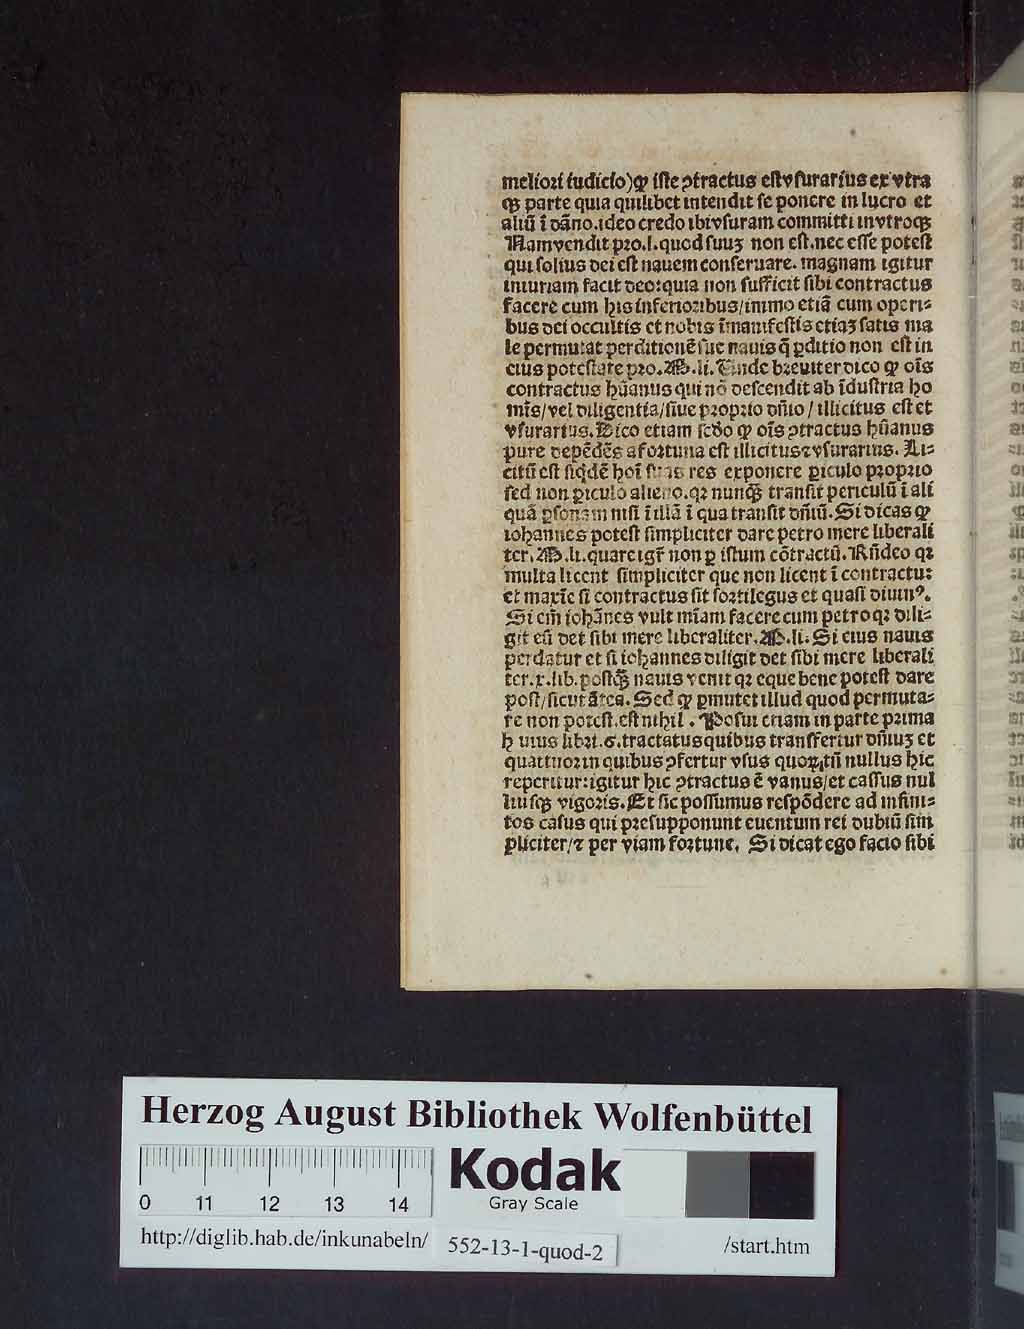 meliori iudicio)ꝙ iste ꝯtractus est vsurarius ex vtra
qꝫ parte quia quilibet intendit se ponere in lucro et
aliū ī dāno.ideo credo ibi vsuram committi in vtroqꝫ
Nam vendit pro.l.quod suuꝫ non est.nec esse potest
qui solius dei est nauem conseruare. magnam igitur
iniuriam facit deo:quia non sufficit sibi contractus
facere cum his inferioribus/immo etiā cum operi⸗
bus dei occultis et nobis īmanifestis etiaꝫ satis ma
le permutat perditionē sue nauis q̄ ꝑditio non est in
eius potestate pro.M.li. Unde breuiter dico ꝙ oīs
contractus hūanus qui nō descendit ab īdustria ho
mīs/vel diligentia/siue proprio dn̄io/illicitus est et
vsurarius. Dico etiam scdo ꝙ oīs ꝯtractus hūanus
pure depēdēs a fortuna est illicitus ⁊ vsurarius. Li⸗
citū est siqdē hoī suas res exponere ꝑiculo proprio
sed non ꝑiculo alieno.qꝛ nunqꝫ transit periculū ī ali
quā ꝑsonam nisi ī illā ī qua transit dn̄iū. Si dicas ꝙ
iohannes potest simpliciter dare petro mere liberali
ter.M.li.quare igr̄ non ꝑ istum cōtractū. Rn̄deo qꝛ
multa licent simpliciter que non licent ī contractu:
et maxīe si contractus sit sortilegus et quasi diuinꝰ.
Si em̄ iohānes vult mīam facere cum petro qꝛ dili⸗
git eū det sibi mere liberaliter.M.li. Si eius nauis
perdatur et si iohannes diligit det sibi mere liberali
ter.x.lib.postqꝫ nauis venit qꝛ eque bene potest dare
post/sicut ātea. Sed ꝙ ꝑmutet illud quod permuta⸗
re non potest.est nihil . Posui etiam in parte prima
h uius libri.6.tractatus quibus transfertur dn̄iuꝫ et
quattuor in quibus ꝯfertur vsus quoꝝ.tn̄ nullus hic
reperitur:igitur hic ꝯtractus ē vanus/et cassus nul
liusqꝫ vigoris. Et sic possumus respōdere ad infini⸗
tos casus qui presupponunt euentum rei dubiū sim
pliciter/⁊ per viam fortune. Si dicat ego facio sibi
Herzog August Bibliothek Wolfenbüttel
0 11 12 13 14
Kodak
Gray Scale
http://diglib.hab.de/inkunabeln/ 552-13-1-quod-2 /start.htm